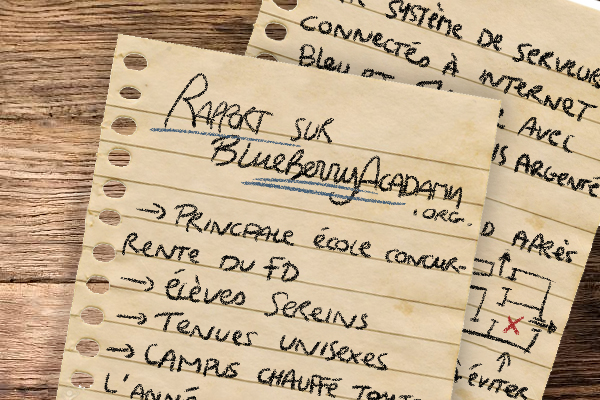 Rapport sur
BlueBerryAcadamia
.org.
→ Principale école concur-
rente du FD
→ Élèves sereins
→ Tenues unisexes
→ Campus chauffé
L'anné
système de serveurs
connectés à internet
Bleu
Avec
argenté
après
éviter